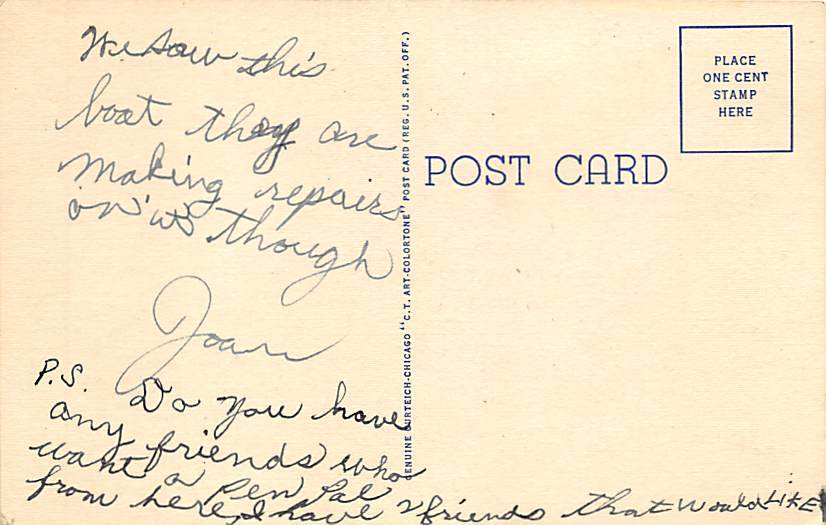 We saw this
boat they are
making repairs
on it though
Joan
P.S. Do you have
any friends who
want a pen pal
from here, I have 2 friends that would LIKE
GENUINE CURTEICH-CHICAGO "C.T. ART-COLORTONE" POST CARD (REG. U.S. PAT. OFF.)
POST CARD
PLACE
ONE CENT
STAMP
HERE